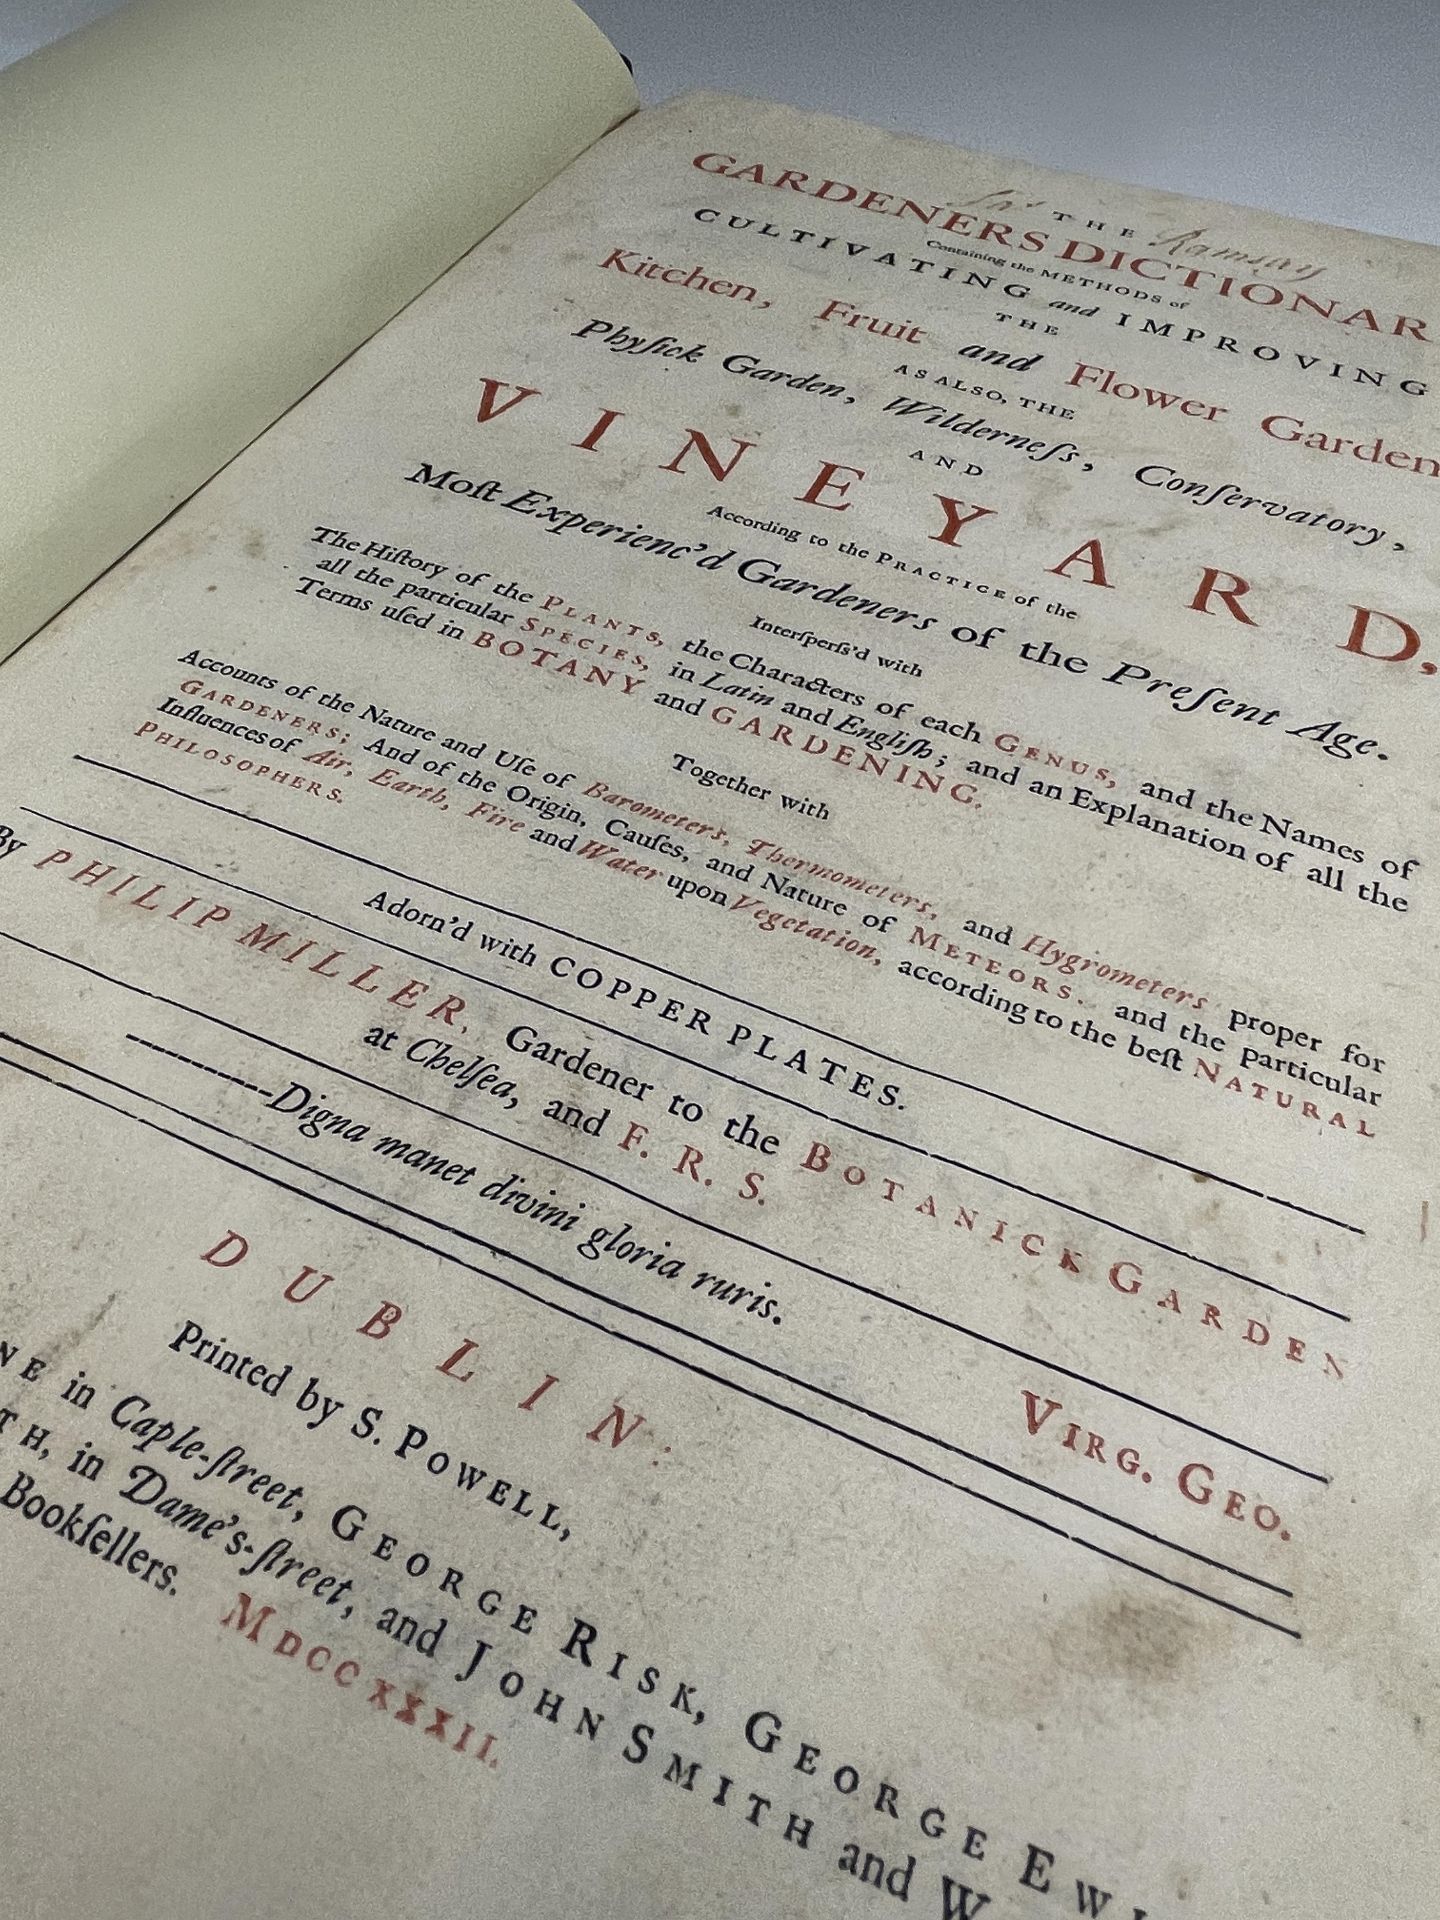 Sir Ramsay
THE
GARDENERS DICTIONAR
Containing the METHODS of
CULTIVATING and IMPROVING
THE
Kitchen, Fruit and Flower Garden
AS ALSO, THE
Phyſick Garden, Wilderneſs, Conſervatory,
AND
VINEYARD,
According to the PRACTICE of the
Moſt Experienc'd Gardeners of the Preſent Age.
Interſperſs'd with
The Hiſtory of the PLANTS, the Characters of each GENUS, and the Names of
all the particular SPECIES, in Latin and Engliſh; and an Explanation of all the
Terms uſed in BOTANY and GARDENING.
Together with
Accounts of the Nature and Uſe of Barometers, Thermometers, and Hygrometers proper for
GARDENERS; And of the Origin, Cauſes, and Nature of METEORS. and the particular
Influences of Air, Earth, Fire and Water upon Vegetation, according to the beſt NATURAL
PHILOSOPHERS.
Adorn'd with COPPER PLATES.
By PHILIP MILLER, Gardener to the BOTANICK GARDEN
at Chelſea, and F. R. S.
----------Digna manet divini gloria ruris. VIRG. GEO.
DUBLIN:
Printed by S. POWELL,
NE in Caple-ſtreet, GEORGE RISK, GEORGE EWI
TH, in Dame's-ſtreet, and JOHN SMITH and W
Bookſellers. MDCCXXXII.